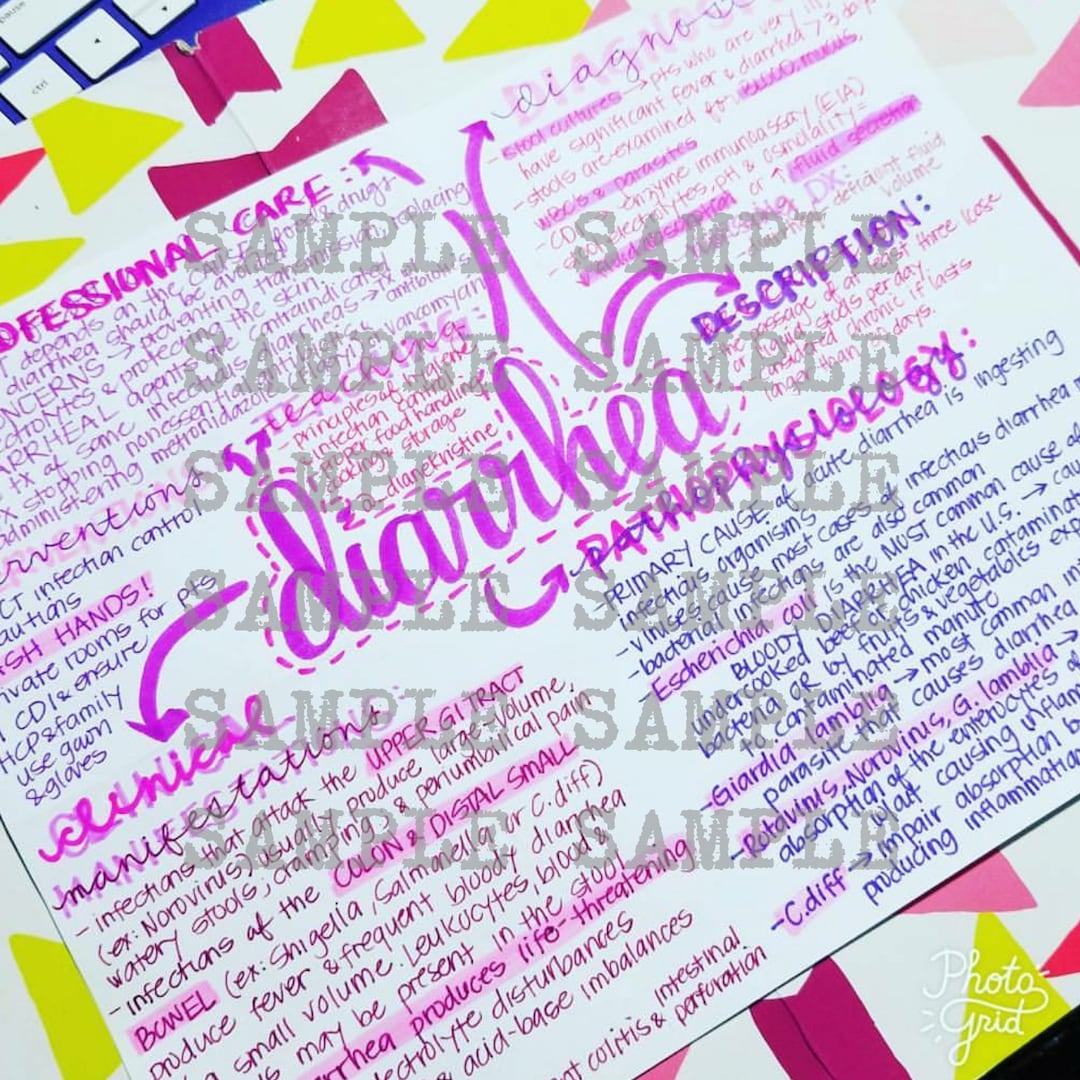 pause
ctrl
diagnose
DIAGNOS
- stool cultures → pts who are very ill,
have significant fever & diarrhea > 3 days
- stools are examined for blood, mucus,
WBC's & parasites
enzyme immunoassay (EIA)
- stool electrolytes, pH & osmolality =
↓ fluid absorption or ↑ fluid secretion
NURSING DX:
deficient fluid
volume
OFESSIONAL CARE:
depends on the cause, foods & drugs
diarrhea should be avoided
NCERNS → preventing transmission, replacing
& protecting the skin
ARRHEAL agents are contraindicated
tx of some infectious diarrheas → tx
stopping nonessential antibiotics
administering metronidazole (Flagyl), vancomycin
teaching:
TEACHING:
- principles of hygiene
- infection control
- proper food handling,
cooking & storage
dianekristine
DESCRIPTION:
the passage of at least three loose
or liquid stools per day
considered chronic if lasts
longer than 30 days.
erventions
CT infection control
autions
ASH HANDS!
rivate rooms for pts
CDI & ensure
HCP & family
use gown
& gloves
diarrhea
pathophysiology:
PATHOPHYSIOLOGY:
- PRIMARY CAUSE of acute diarrhea is ingesting
infectious organisms
- viruses cause most cases of infectious diarrhea
- bacterial infections are also common
- Escherichia coli is the MOST common cause of
BLOODY DIARRHEA in the U.S. →
undercooked beef or chicken contaminated
bacteria OR by fruits & vegetables exp
to contaminated manure
- Giardia lamblia → most common int
parasite that causes diarrhea
- Rotavirus, Norovirus, G. lamblia →
absorption of the enterocytes
causing inflam
- C.diff → impair absorption b
producing inflammation
clinical
CLINICAL
manifestations:
MANIFESTATIONS:
- infections that attack the UPPER GI TRACT
(ex: Norovirus) usually produce large-volume,
watery stools, cramping & periumbilical pain
- infections of the COLON & DISTAL SMALL
BOWEL (ex: Shigella, Salmonella or C.diff)
produce fever & frequent bloody diarrhea
small volume. Leukocytes, blood &
may be present in the stool
arrhea produces life-threatening
lectrolyte disturbances
& acid-base imbalances
colitis & intestinal
perforation
SAMPLE SAMPLE
SAMPLE SAMPLE
SAMPLE SAMPLE
SAMPLE SAMPLE
SAMPLE SAMPLE
SAMPLE SAMPLE
Photo
Grid